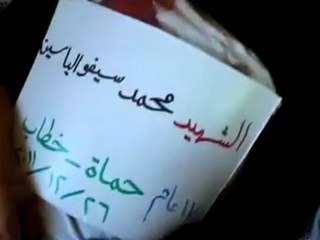 الشهيد محمد سيفو الياسين
١١ عام حماة - خطاب
٢٠١١/١٢/٢٦